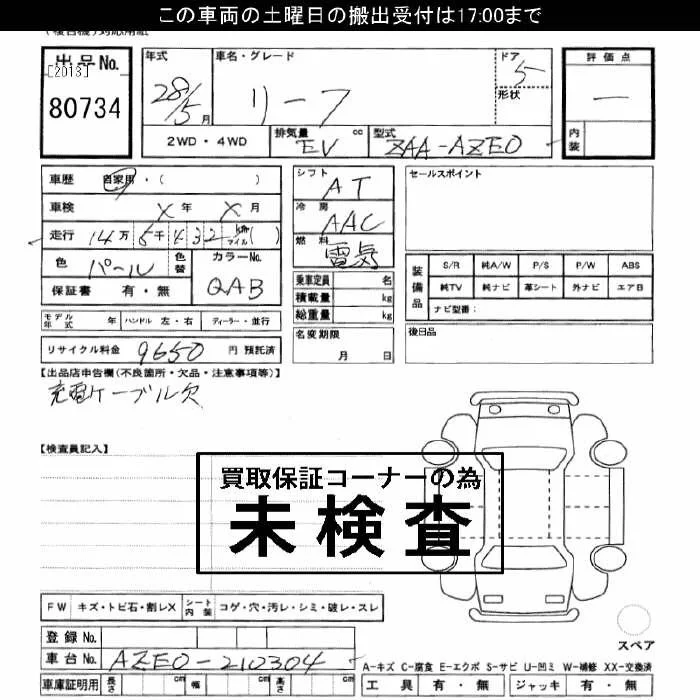 この車両の土曜日の搬出受付は17:00まで
出品No.
[2013]
80734
年式
28/5月
車名・グレード
リーフ
ドア
5
形状
評価点
―
内装
2WD・4WD
排気量
EV cc
型式
ZAA-AZE0
車歴 自家用・( )
車検 X年 X月
走行 14万5千432 km マイル ( )
色 パール 色替
カラーNo.
QAB
保証書 有・無
シフト
AT
冷房
AAC
燃料
電気
乗車定員 名
積載量 kg
総重量 kg
セールスポイント
装備品 S/R 純A/W P/S P/W ABS
純TV 純ナビ 革シート 外ナビ エアB
ナビ型番:
モデル年式 年 ハンドル 左・右 ディーラー・並行
名変期限
月 日
後日品
リサイクル料金 9650 円 預託済
【出品店申告欄(不良箇所・欠品・注意事項等)】
充電ケーブル欠
【検査員記入】
買取保証コーナーの為
未検査
FW キズ・トビ石・割レX シート内装 コゲ・穴・汚レ・シミ・破レ・スレ
登録No.
車台No. AZE0-210304
スペア
A-キズ C-腐食 E-エクボ S-サビ U-凹ミ W-補修 XX-交換済
車庫証明用 長さ cm 幅 cm 高さ cm
工具 有・無 ジャッキ 有・無